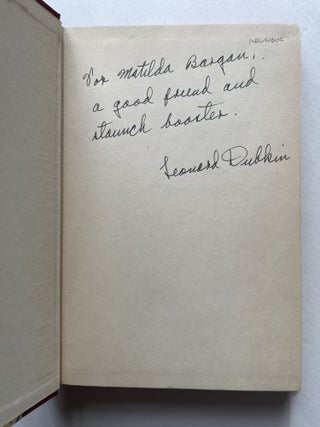 For Matilda Bargan,
a good friend and
staunch booster.
Leonard Dubkin